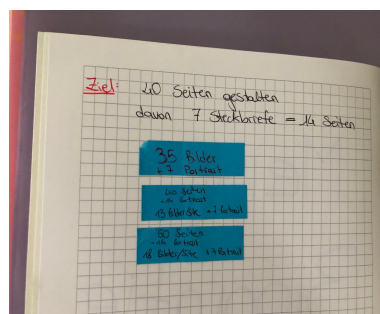 Ziel: 40 Seiten gestalten
davon 7 Steckbriefe = 14 Seiten
35 Bilder
+ 7 Portrait
40 Seiten
-14 Portrait
13 Bilder/Stk + 7 Portrait
50 Seiten
-14 Portrait
18 Bilder/Stk + 7 Portrait